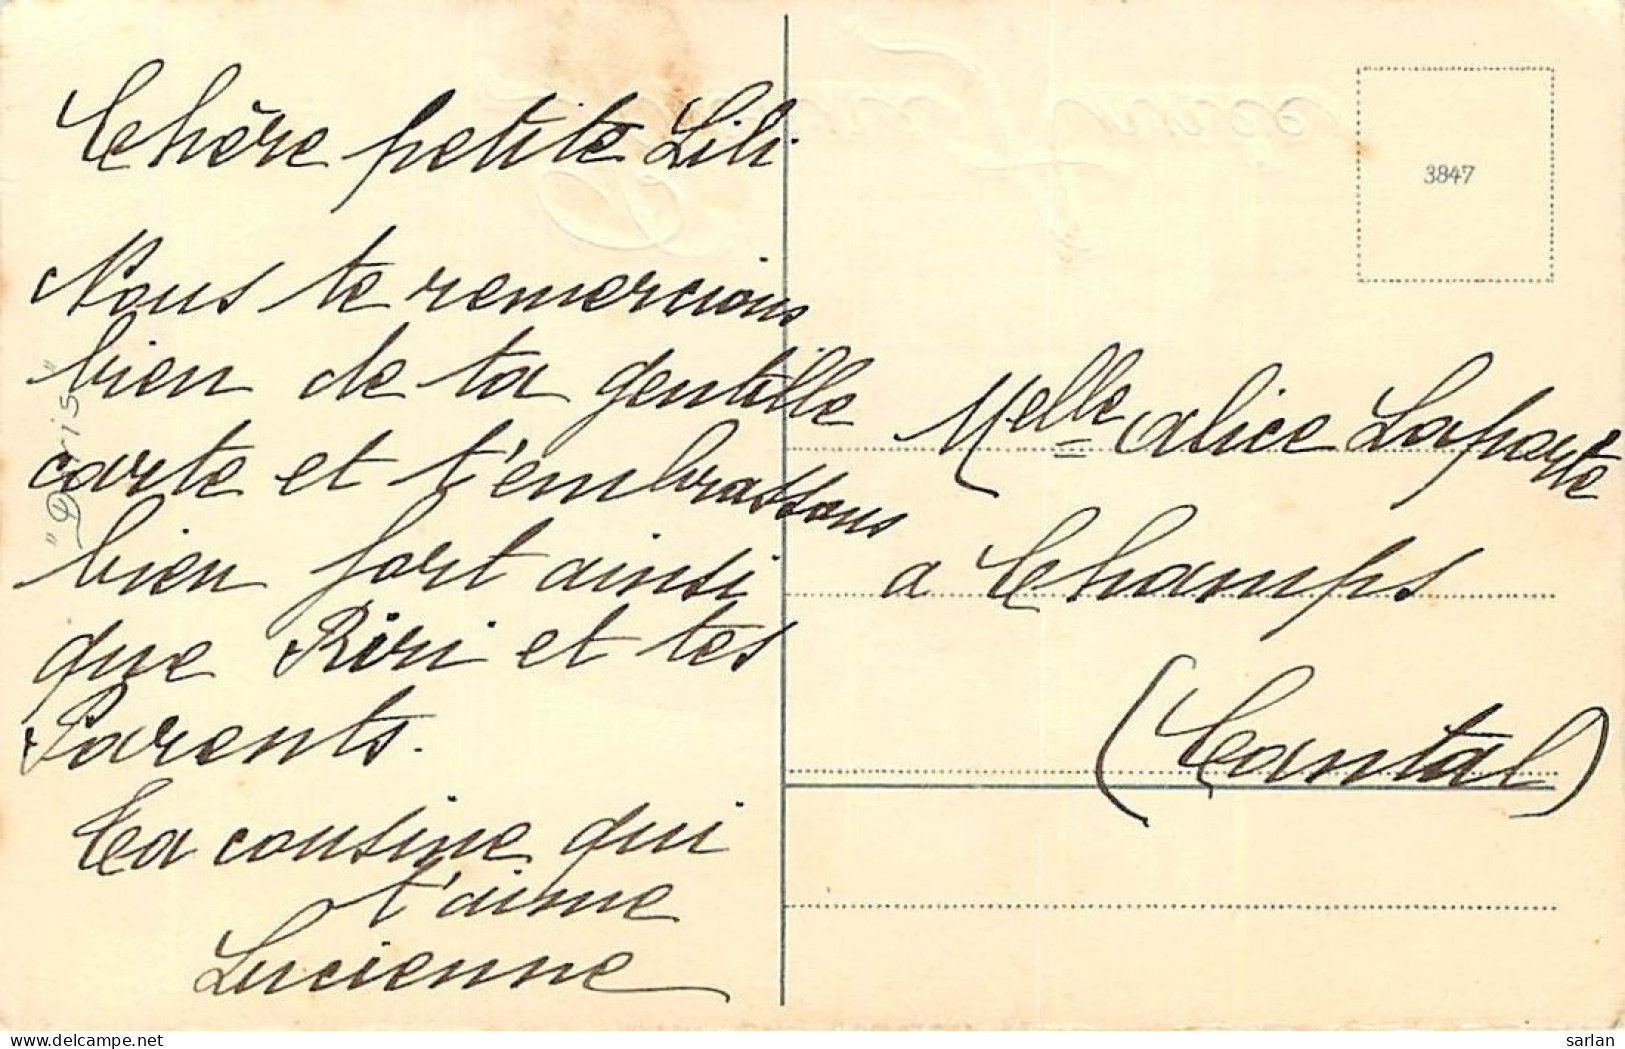 Chère petite Lili
Nous te remercions
bien de ta gentille
carte et t'embrassons
bien fort ainsi
que Riri et tes
Parents.
Ta cousine qui
t'aime
Lucienne
"Dris"
3847
Melle Alice Laporte
a Champs
(Cantal)
delcampe.net
sarlan